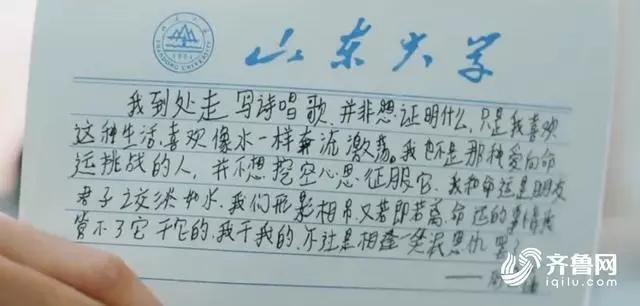 SHANDONG UNIVERSITY
1901
山东大学
我到处走 写诗唱歌,并非想证明什么,只是我喜欢
这种生活,喜欢像水一样奔流激荡。我也不是那种爱向命
运挑战的人,并不想挖空心思征服它。我和命运是朋友
君子之交淡如水,我们形影相吊又若即若离,命运的事情我
管不了它 干它的,我干我的,不过是相逢一笑泯恩仇 罢了
——
齐鲁网
iqilu.com